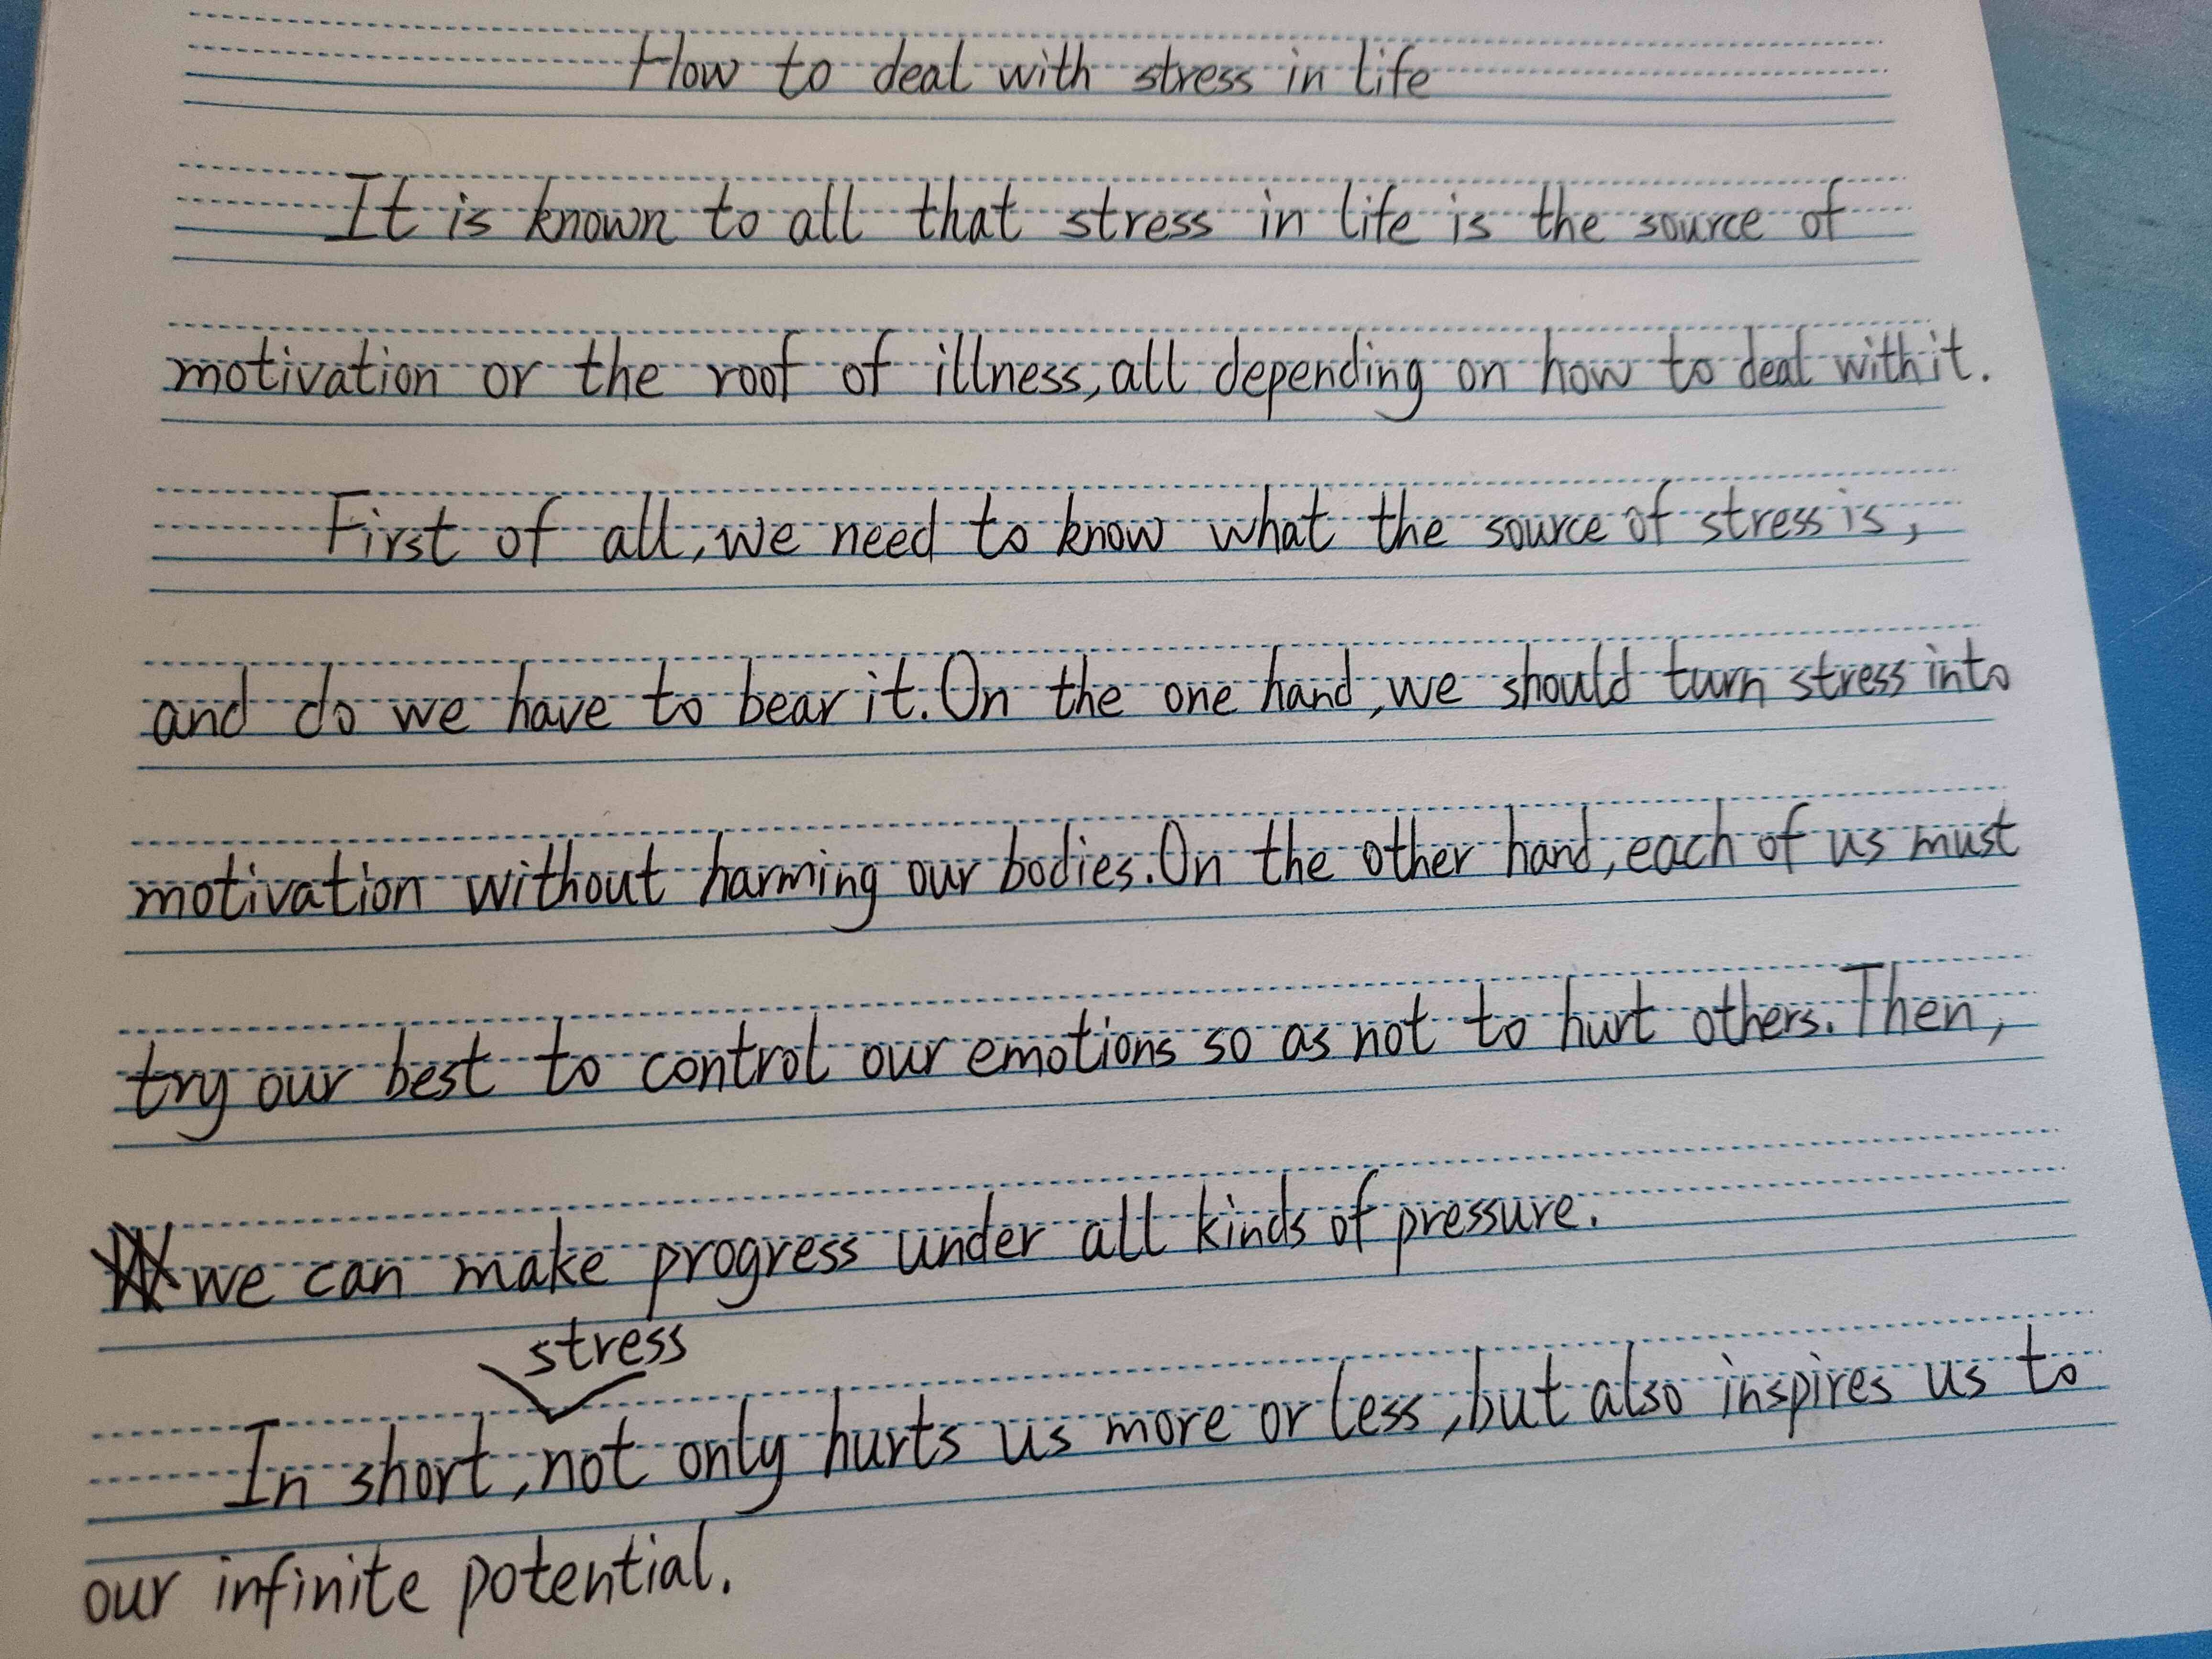 How to deal with stress in life
It is known to all that stress in life is the source of
motivation or the roof of illness, all depending on how to deal with it.
First of all, we need to know what the source of stress is,
and do we have to bear it. On the one hand, we should turn stress into
motivation without harming our bodies. On the other hand, each of us must
try our best to control our emotions so as not to hurt others. Then,
we can make progress under all kinds of pressure.
stress
In short, not only hurts us more or less, but also inspires us to
our infinite potential.